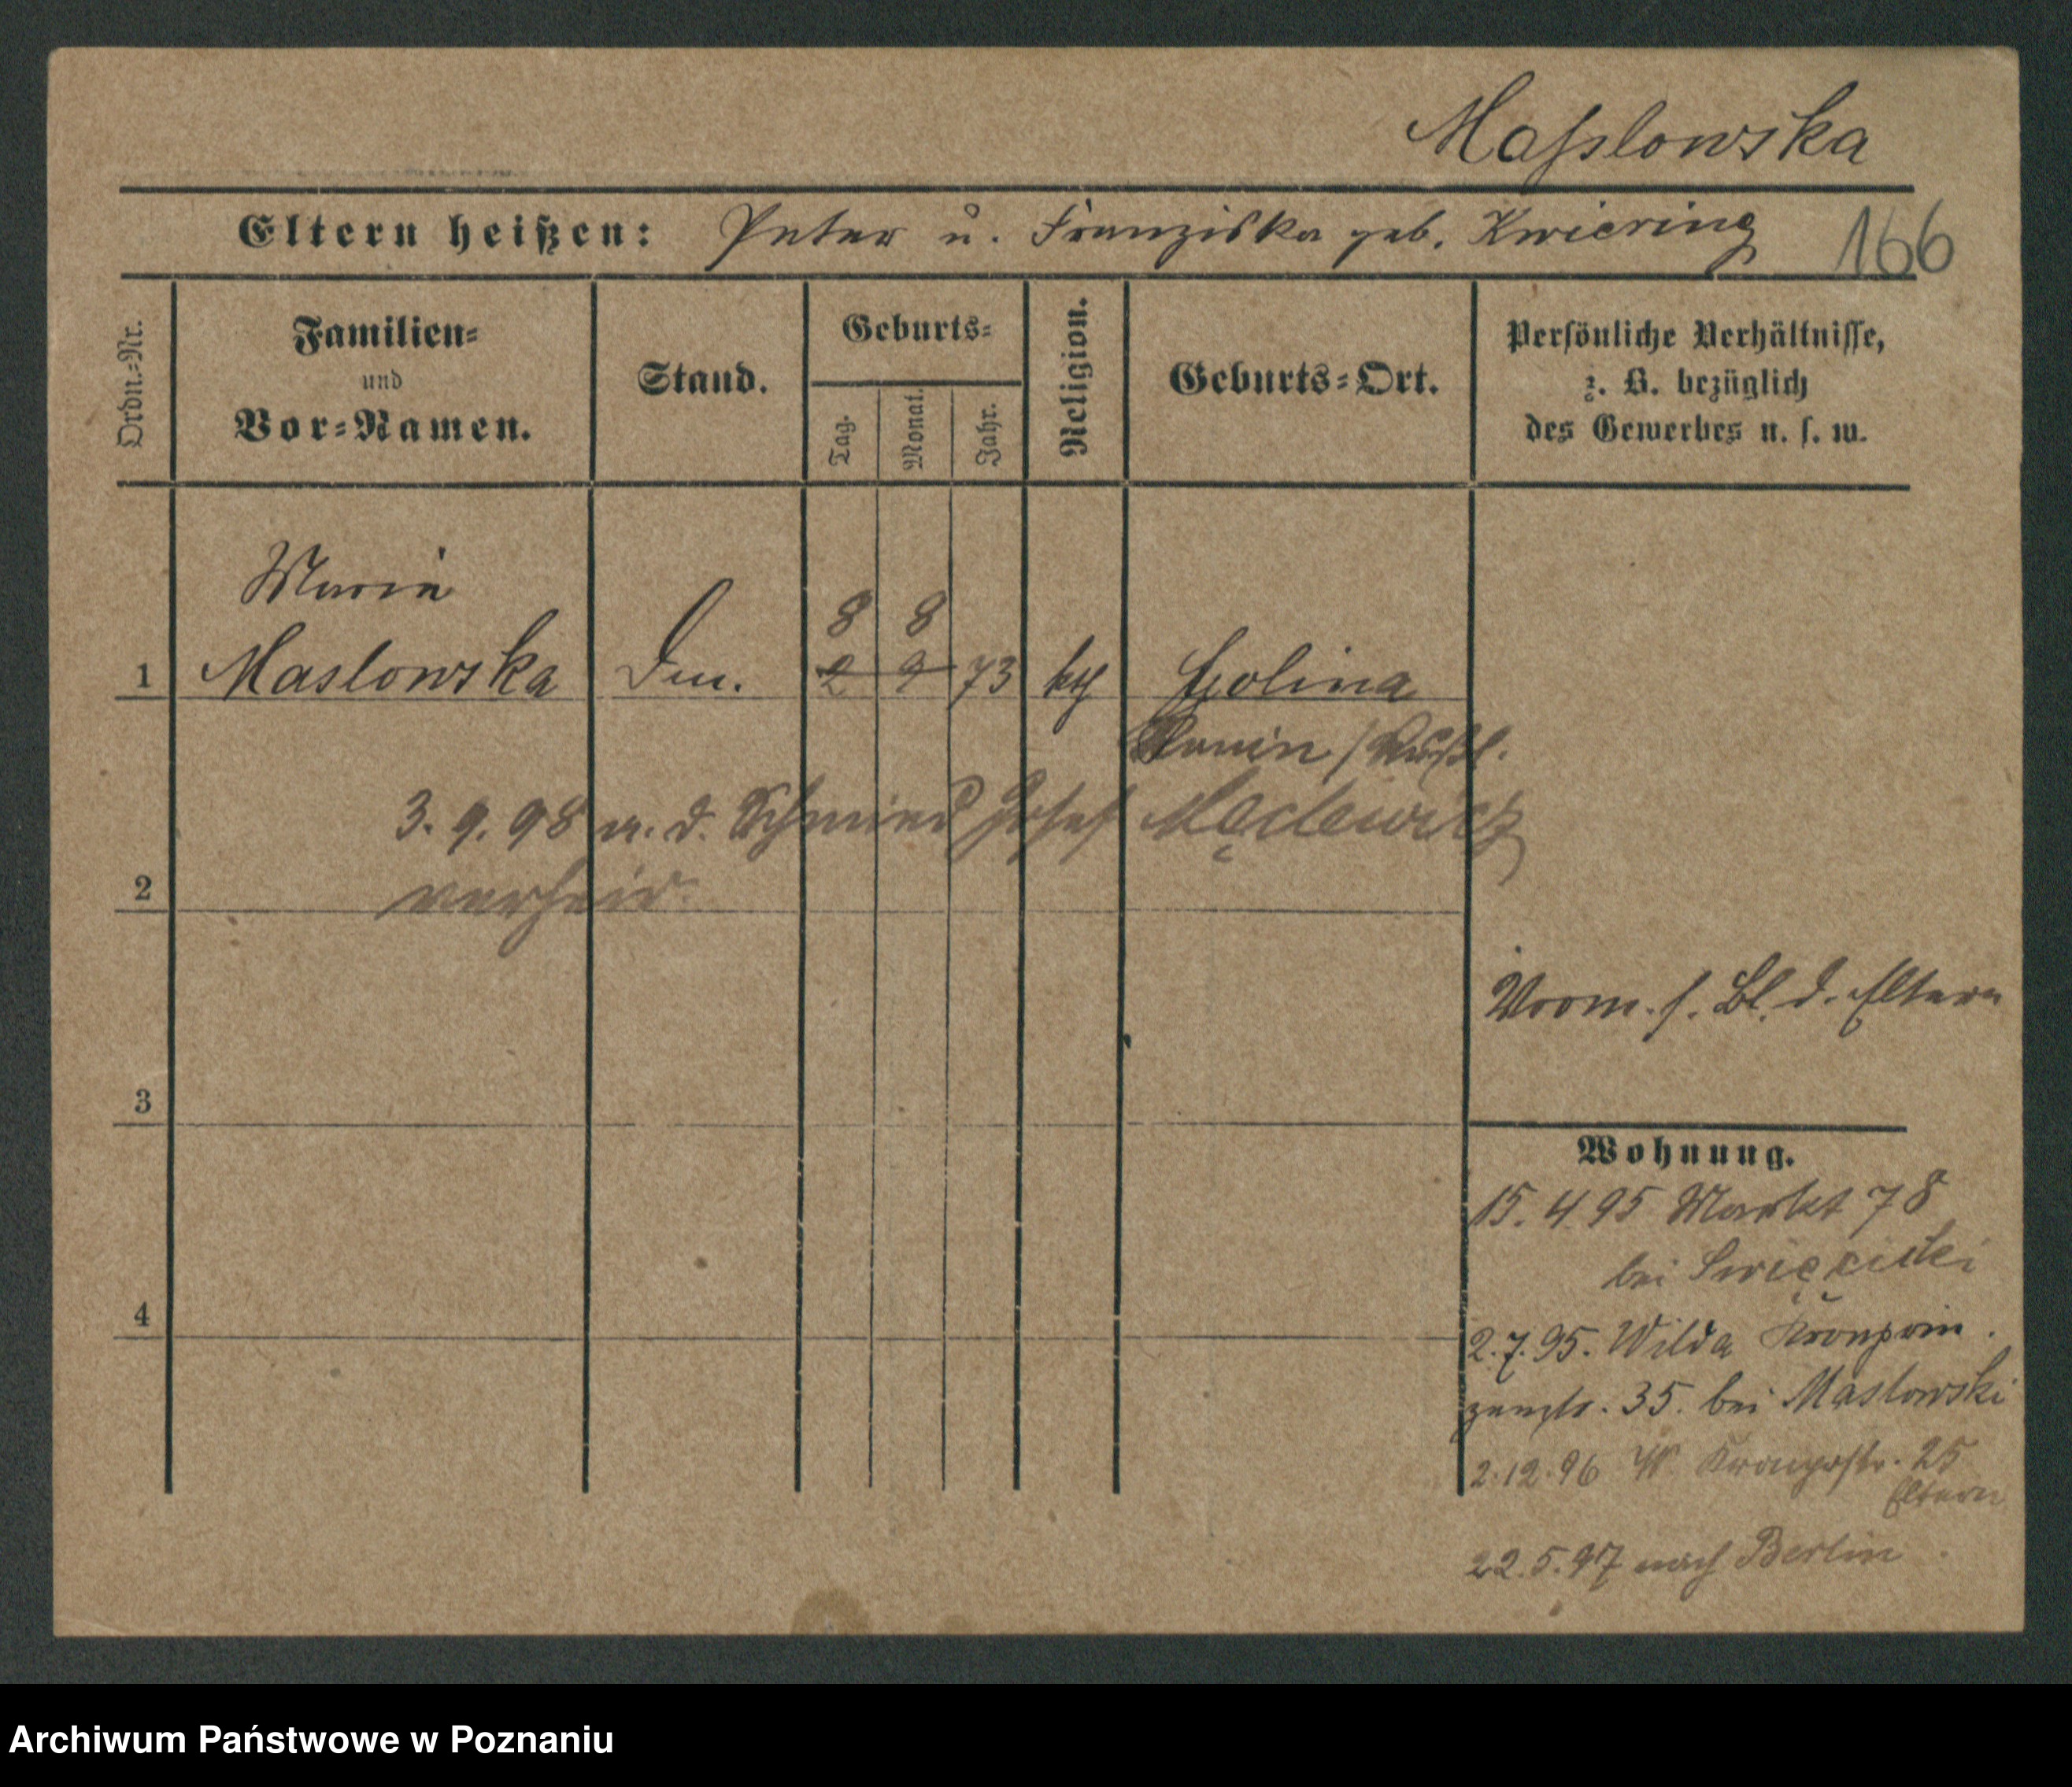 Maſslowska
Eltern heißen: Peter u. Franziska geb. Kwiering
166
Ordn.-Nr.
Familien-
und
Vor-Namen.
Stand.
Geburts-
Tag.
Monat.
Jahr.
Religion.
Geburts-Ort.
Perſönliche Verhältniſſe,
z. B. bezüglich
des Gewerbes u. ſ. w.
Marie
8 8
1 Maslowska 2 9 73 kth Golina
Konin / Rußl.
3. 9. 98 m. d. Schmied Josef
2 verheir.
Vorm. s. Bl. d. Eltern
3
Wohnung.
15. 4 95 Markt 78
bei
4
2. 7. 95. Wilda Kronprin.
zenstr. 35. bei Maslowski
2. 12. 96 W Kronprstr. 25
Eltern
22. 5. 97 nach Berlin
Archiwum Państwowe w Poznaniu